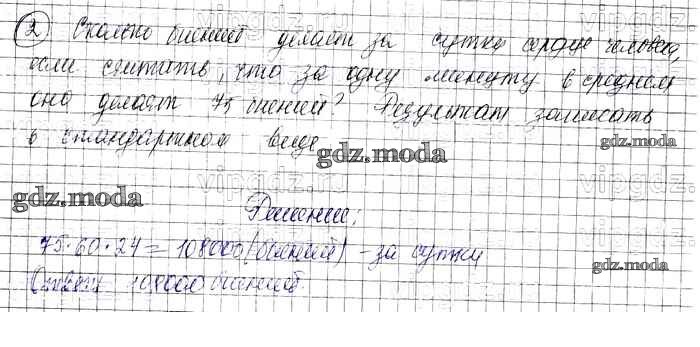 vipgdz.ru
② Сколько биений делает за сутки сердце человека,
если считать, что за одну минуту в среднем
оно делает 75 биений? Результат записать
в стандартном виде
gdz.moda
gdz.moda
gdz.moda
vipgdz.ru
vipgdz.ru
Решение:
75·60·24 = 108000 (биений) - за сутки
gdz.moda
Ответ: 108000 биений.